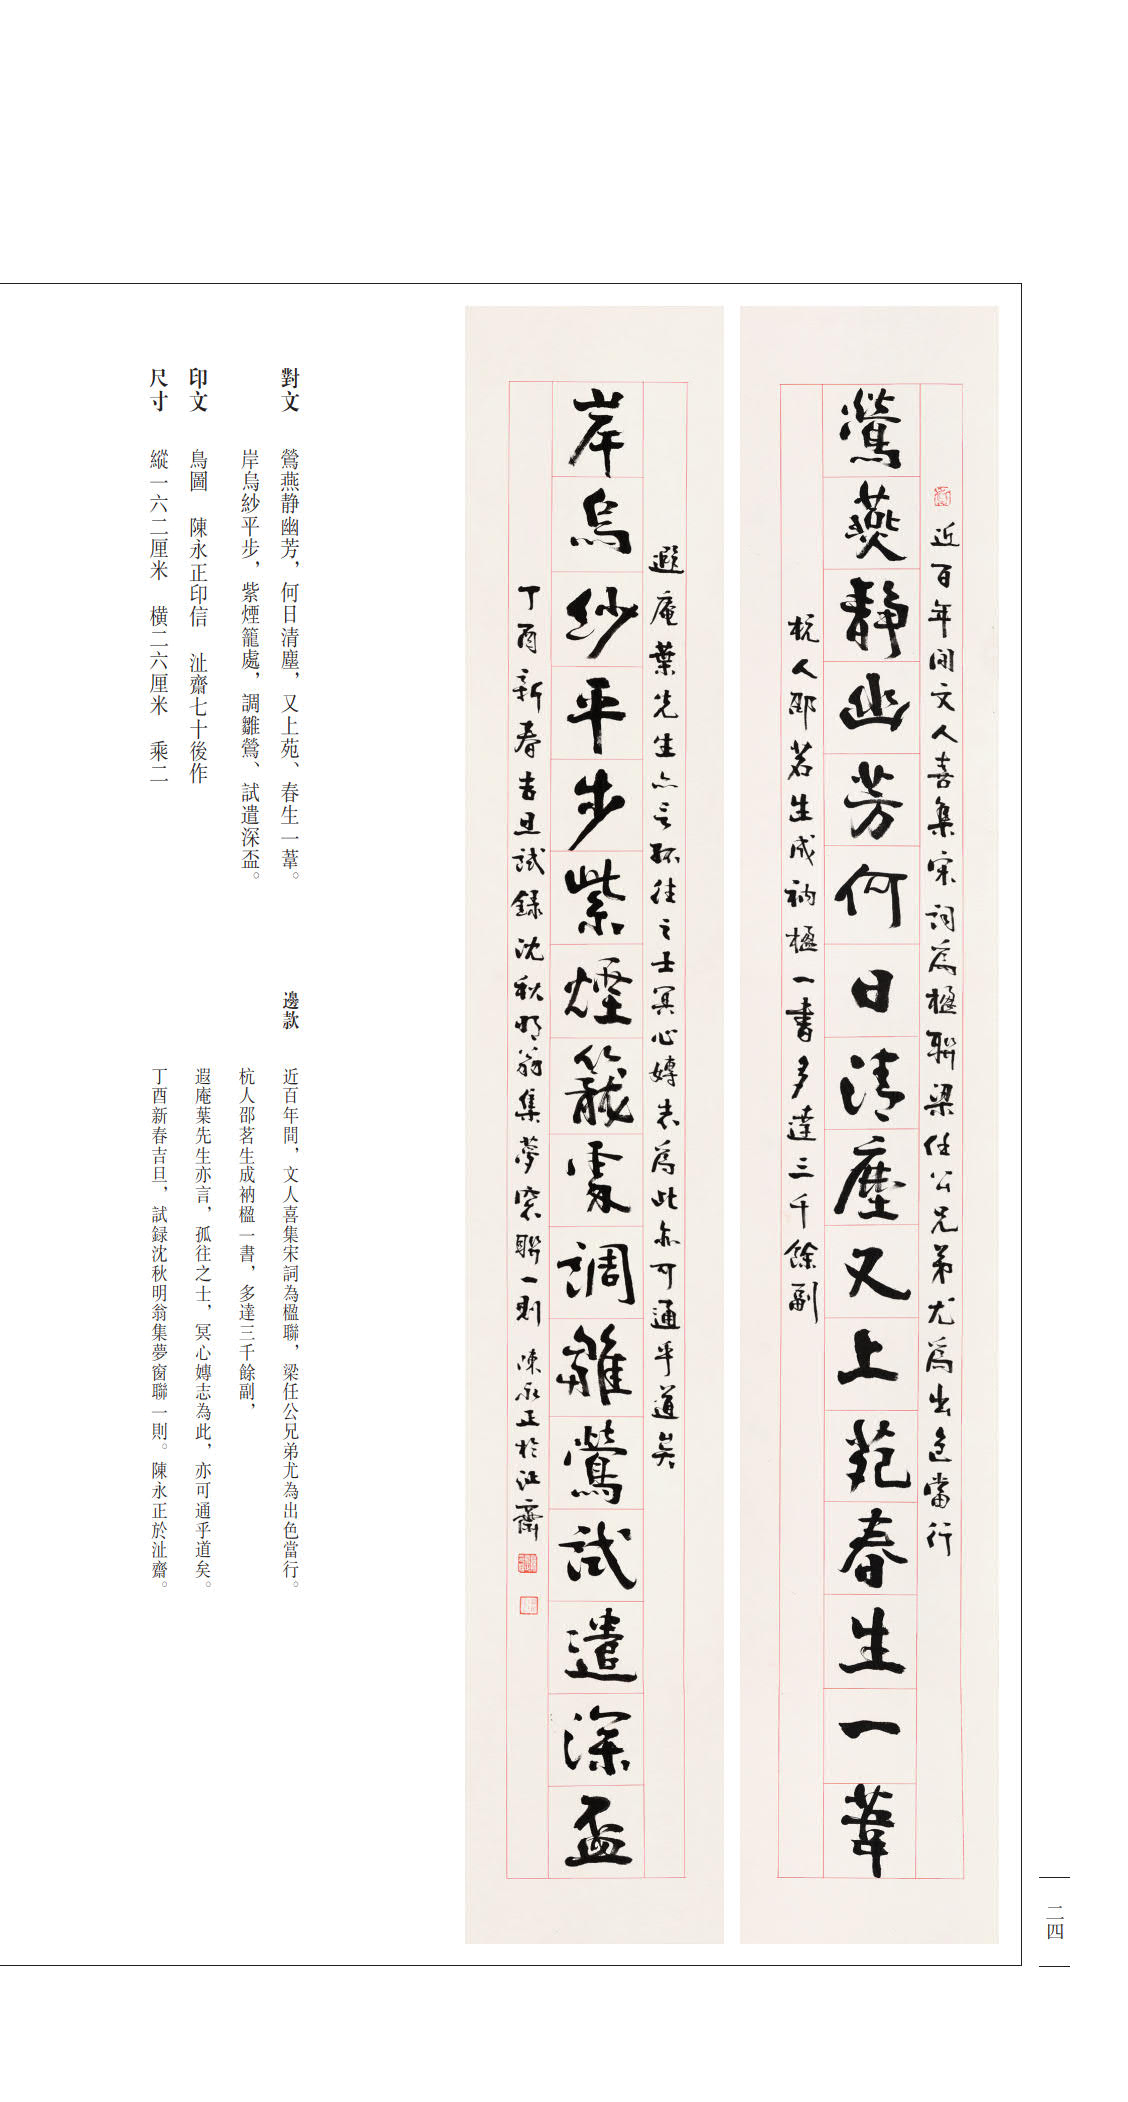 近百年間文人喜集宋詞為楹聯梁任公兄弟尤為出色當行
鶯燕静幽芳何日清塵又上苑春生一葦
杭人邵茗生成衲楹一書多達三千餘副
遐庵葉先生亦言孤往之士冥心嫥志為此亦可通乎道矣
岸烏紗平步紫煙籠處調雛鶯試遣深盃
丁酉新春吉旦試録沈秋明翁集夢窗聯一則 陳永正於沚齋
對文 鶯燕静幽芳，何日清塵，又上苑、春生一葦。
岸烏紗平步，紫煙籠處，調雛鶯、試遣深盃。
印文 鳥圖 陳永正印信 沚齋七十後作
尺寸 縱一六二厘米 橫二六厘米 乘二
邊款 近百年間，文人喜集宋詞為楹聯，梁任公兄弟尤為出色當行。
杭人邵茗生成衲楹一書，多達三千餘副，
遐庵葉先生亦言，孤往之士，冥心嫥志為此，亦可通乎道矣。
丁酉新春吉旦，試録沈秋明翁集夢窗聯一則。陳永正於沚齋。
二四